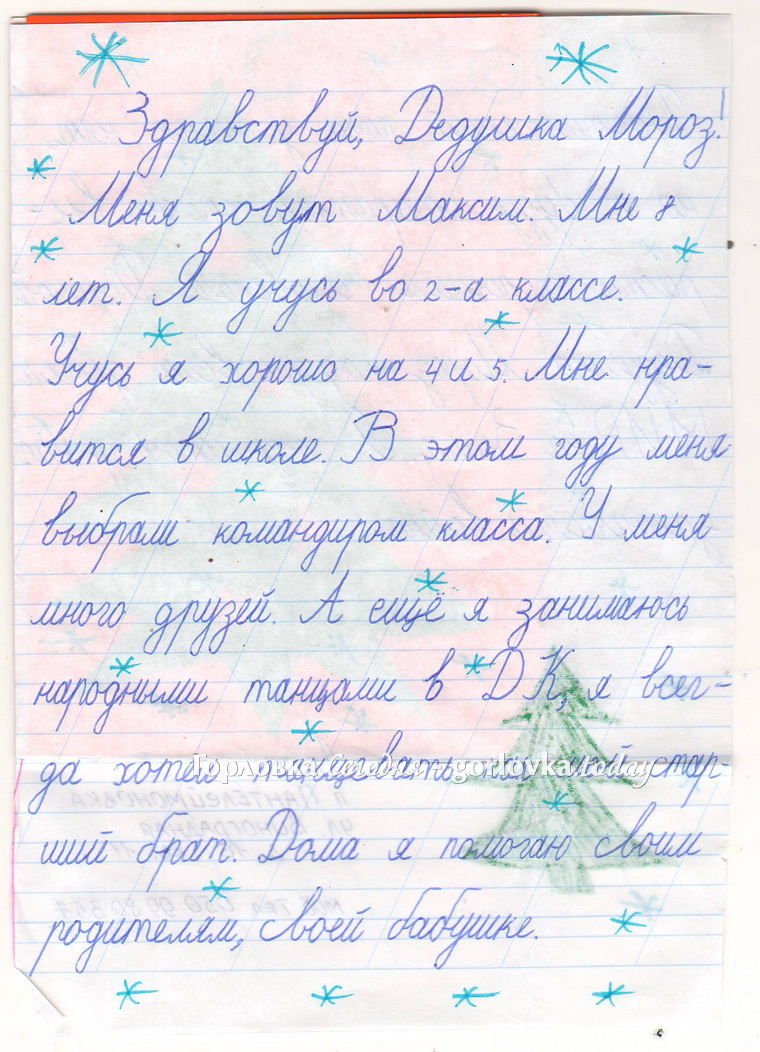 Здравствуй, Дедушка Мороз!
Меня зовут Максим. Мне 8
лет. Я учусь во 2-а классе.
Учусь я хорошо на 4 и 5. Мне нра-
вится в школе. В этом году меня
выбрали командиром класса. У меня
много друзей. А ещё я занимаюсь
народными танцами в ДК, я всег-
да хотел танцевать стар-
Горловка Сегодня - gorlovka.today
ший брат. Дома я помогаю своим
родителям, своей бабушке.